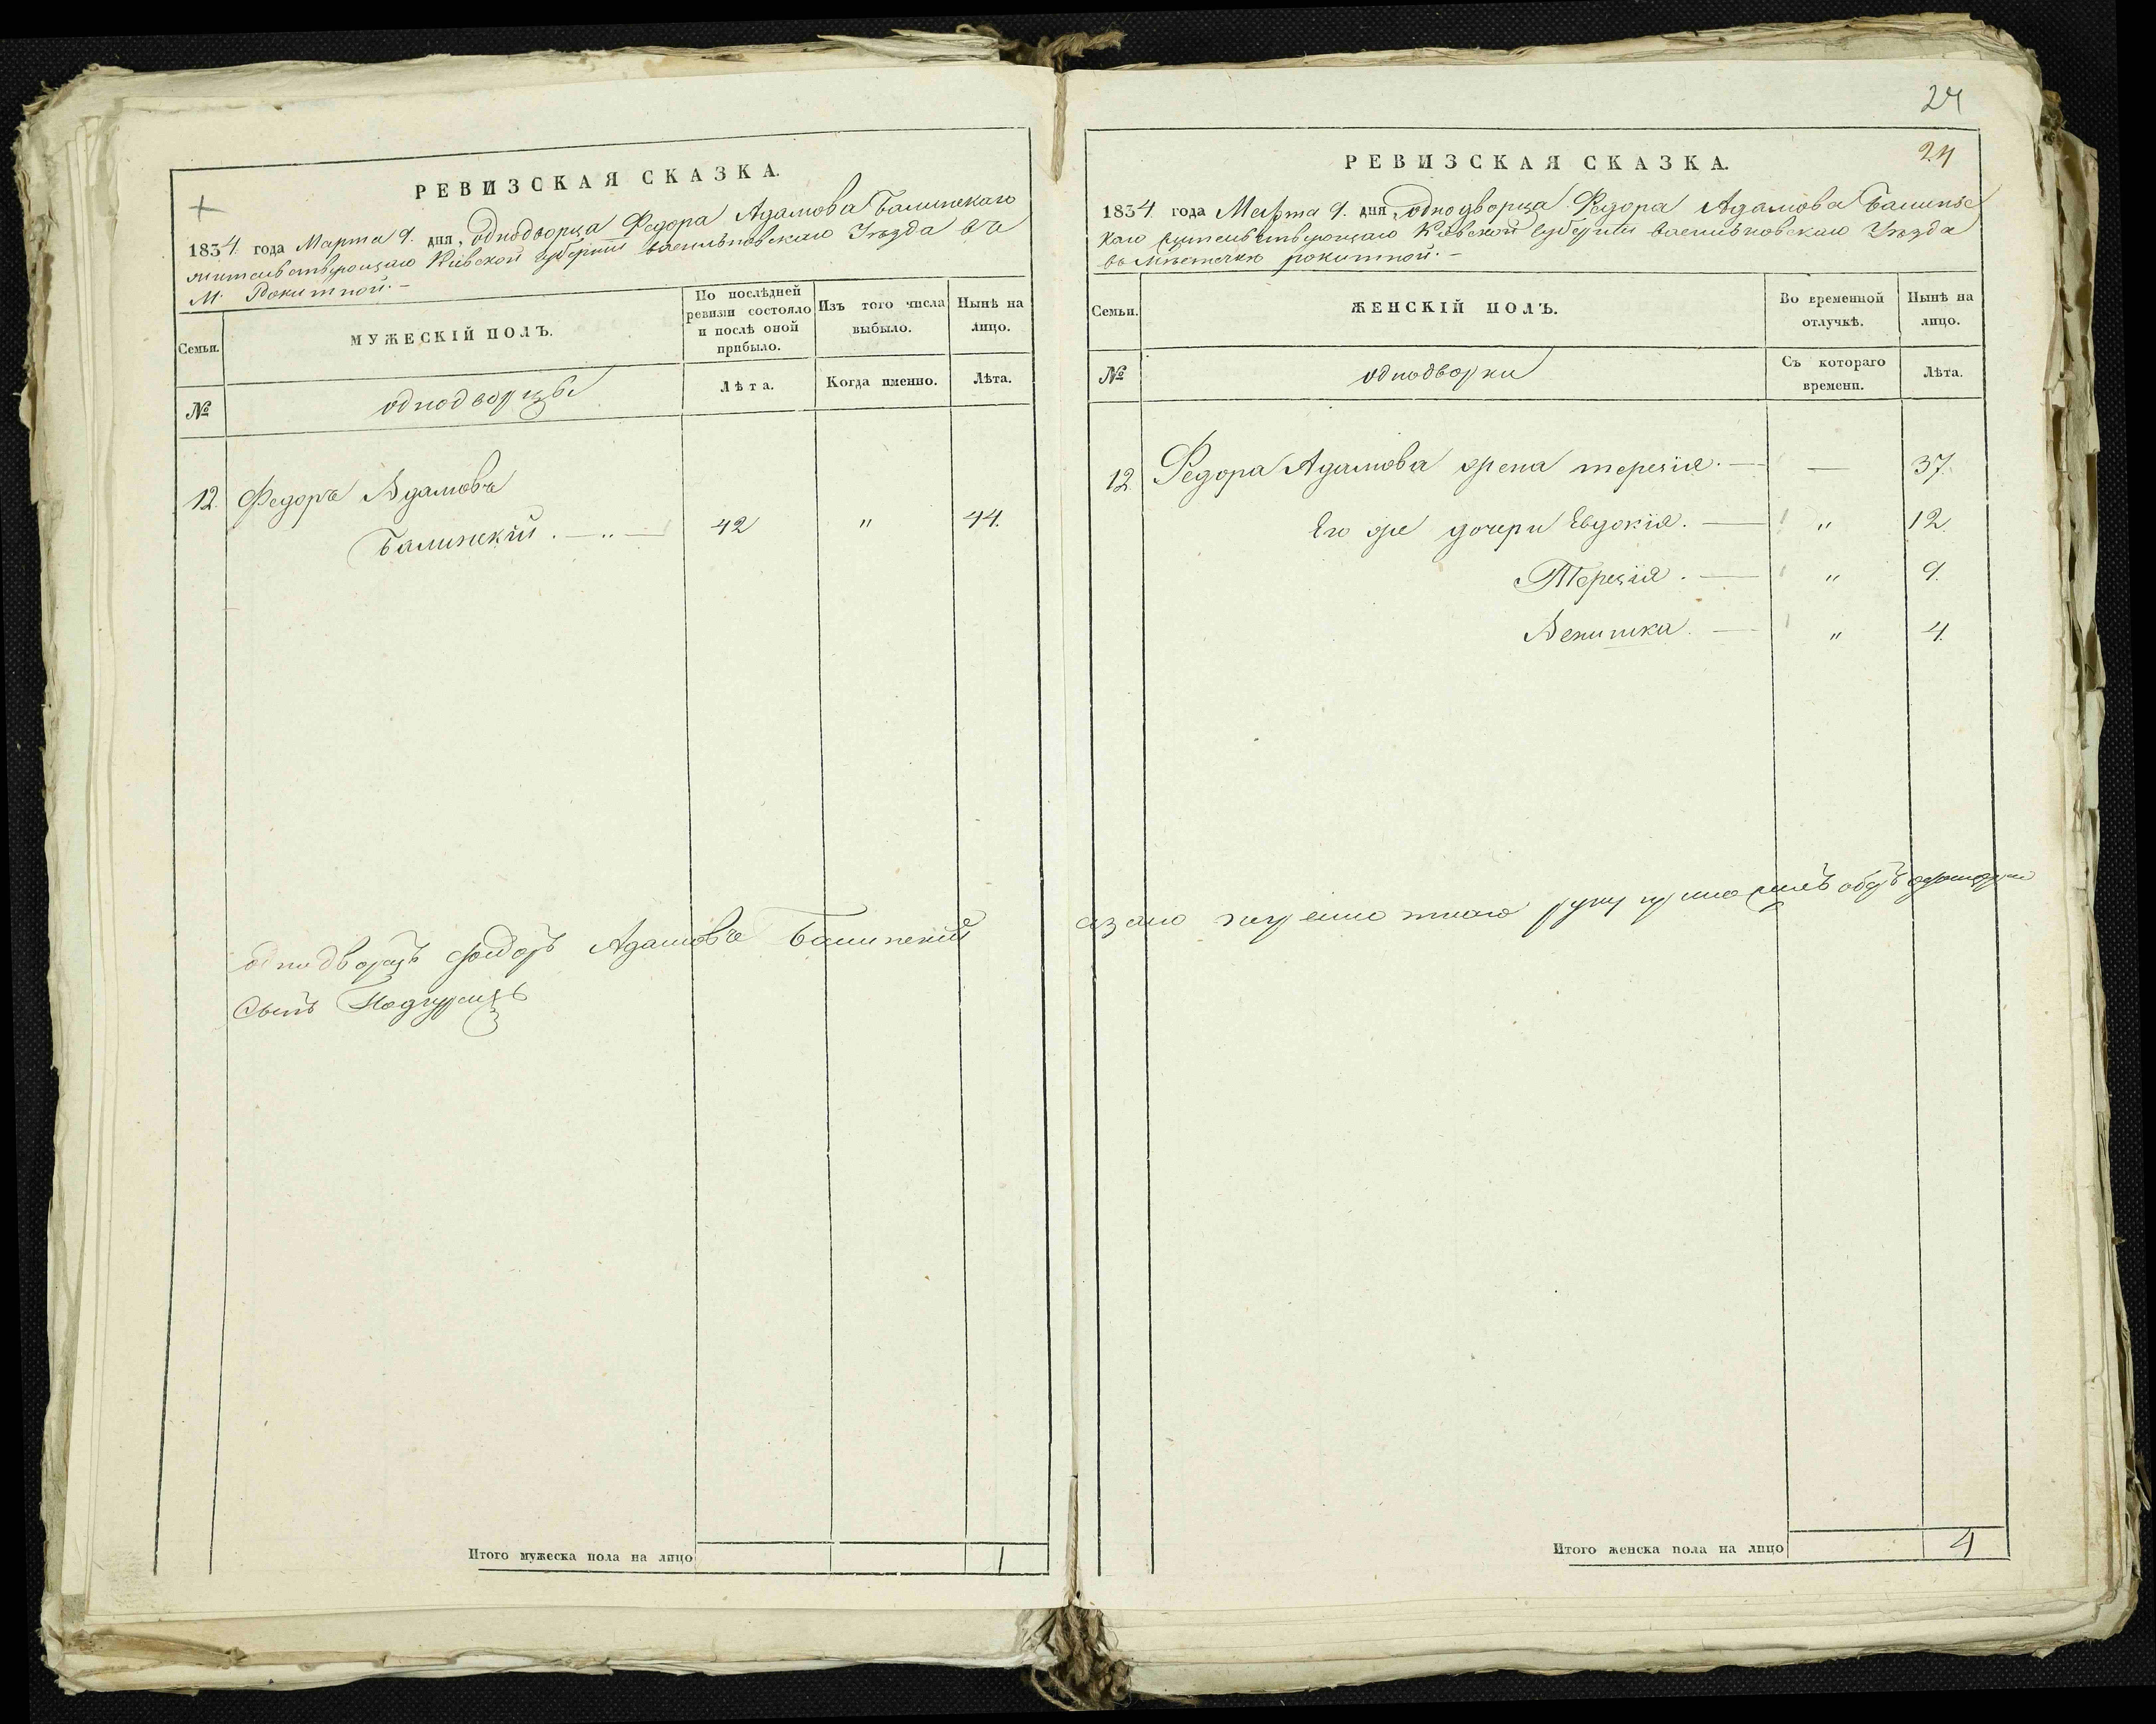 РЕВИЗСКАЯ СКАЗКА.
1834 года Марта 9. дня, Однодворца Федора Адамова Балинскаго
жительствующаго Кіевской Губерніи Васильковскаго Уѣзда въ
М. Рокитной.
Семьи.
МУЖЕСКІЙ ПОЛЪ.
По послѣдней ревизіи состояло и послѣ оной прибыло.
Изъ того числа выбыло.
Нынѣ на лицо.
№
однодворцы
Лѣта.
Когда именно.
Лѣта.
12. Федоръ Адамовъ
Балинскій. 42 " 44.
однодворецъ Адамовъ Балинскій
Итого мужеска пола на лицо 1
24
24
РЕВИЗСКАЯ СКАЗКА.
1834 года Марта 9. дня, Однодворца Федора Адамова Балинс
каго жительствующаго Кіевской Губерніи Васильковскаго Уѣзда
въ Мѣстечкѣ рокитной.
Семьи.
ЖЕНСКІЙ ПОЛЪ.
Во временной отлучкѣ.
Нынѣ на лицо.
№
однодворки
Съ котораго времени.
Лѣта.
12. Федора Адамова жена терезія. — 37.
Его же дочери Евдокія. " 12
Терезія. " 9.
" 4.
руку
Итого женска пола на лицо 4